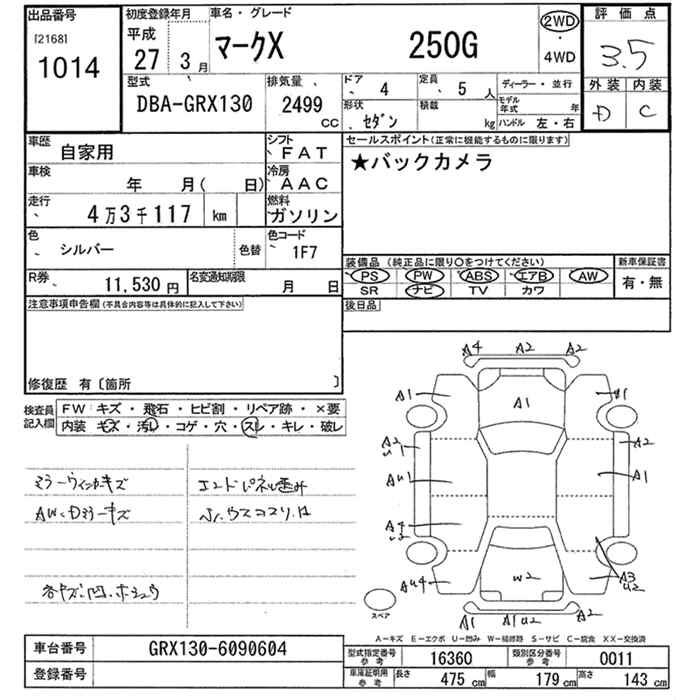 出品番号 初度登録年月 車名・グレード 評価点
[2168] 平成 マークX 250G 2WD 3.5
1014 27 3月 4WD 外装 内装
型式 排気量 ドア 4 定員 5人 ディーラー・並行 D C
DBA-GRX130 2499 cc 形状 セダン 積載 kg モデル年式 年 ハンドル 左・右
車歴 自家用 シフト FAT セールスポイント(正常に機能するものに限ります)
車検 年 月( 日) 冷房 AAC ★バックカメラ
走行 4万3千117 km 燃料 ガソリン
色 シルバー 色替 色コード 1F7
装備品(純正品に限り○をつけてください) 新車保証書
R券 11,530円 名変通知期限 月 日 PS PW ABS エアB AW 有・無
SR ナビ TV カワ
注意事項申告欄(不具合内容等は具体的に記入して下さい) 後日品
修復歴 有〔箇所 〕
検査員記入欄 FW キズ・飛石・ヒビ割・リペア跡・×要
内装 キズ・汚レ・コゲ・穴・スレ・キレ・破レ
ミラーウィンカーキズ エンドパネル歪み
AW・Dミラーキズ
A4 A2 A2
A1 A1 A1
A2 A2
AU1 A1
A4
AU4 W2 A3
A2 A1 U2 A2
スペア
A-キズ E-エクボ U-凹み W-補修跡 S-サビ C-腐食 XX-交換済
車台番号 GRX130-6090604 型式指定番号 参考 16360 類別区分番号 参考 0011
登録番号 車庫証明用 参考 長さ 475 cm 幅 179 cm 高さ 143 cm